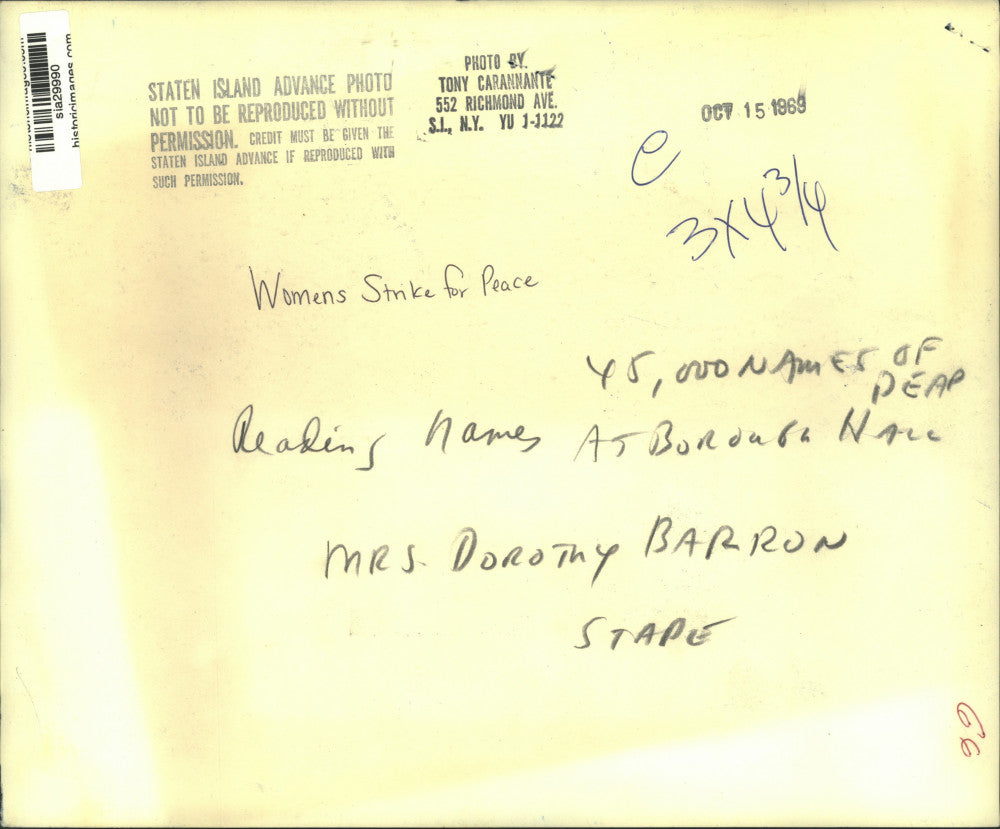 historicimages.com
sia29990
historicimages.com
STATEN ISLAND ADVANCE PHOTO
NOT TO BE REPRODUCED WITHOUT
PERMISSION. CREDIT MUST BE GIVEN THE
STATEN ISLAND ADVANCE IF REPRODUCED WITH
SUCH PERMISSION.
PHOTO BY
TONY CARANNANTE
552 RICHMOND AVE.
S.I., N.Y. YU 1-1122
OCT 15 1969
e
3x4 3/4
Womens Strike for Peace
45,000 NAMES OF
DEAD
Reading Names AT BOROUGH HALL
MRS. DOROTHY BARRON